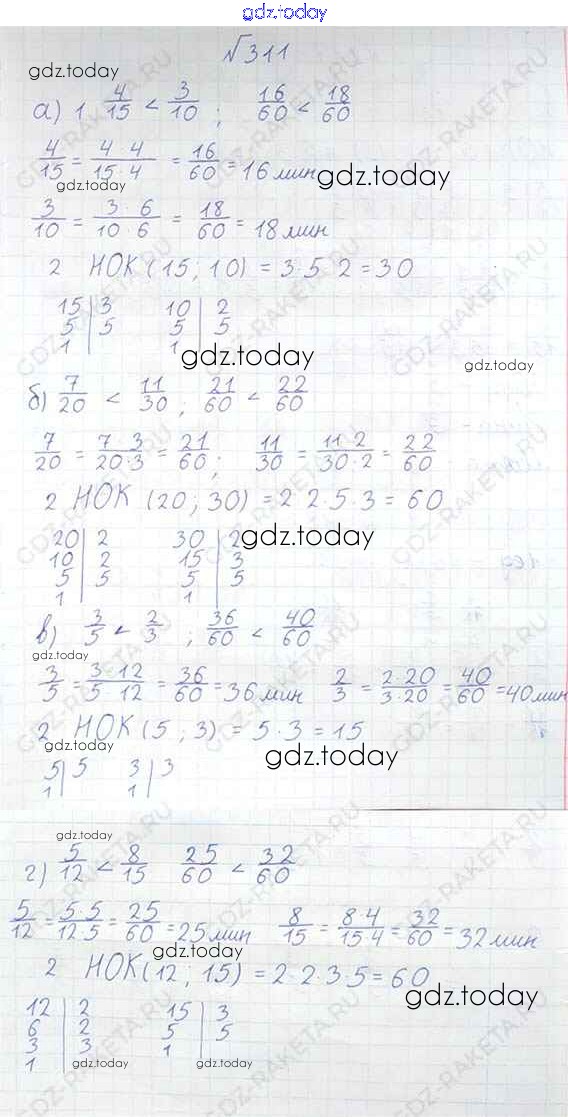 gdz.today
№311
gdz.today
а) 1 4/15 < 3/10 ; 16/60 < 18/60
4/15 = 4 4/15·4 = 16/60 = 16 мин
gdz.today
gdz.today
3/10 = 3·6/10·6 = 18/60 = 18 мин
2 НОК (15; 10) = 3·5 2 = 30
15 | 3 10 | 2
5 | 5 5 | 5
1 | 1 |
gdz.today
б) 7/20 < 11/30 ; 21/60 < 22/60
7/20 = 7·3/20·3 = 21/60 ; 11/30 = 11·2/30·2 = 22/60
2 НОК (20; 30) = 2 2·5·3 = 60
20 | 2 30 | 2
gdz.today
10 | 2 15 | 3
5 | 5 5 | 5
1 | 1 |
в) 3/5 < 2/3 ; 36/60 < 40/60
gdz.today
3/5 = 3·12/5 12 = 36/60 = 36 мин 2/3 = 2·20/3·20 = 40/60 = 40 мин
2 НОК (5; 3) = 5·3 = 15
gdz.today
5 | 5 3 | 3
1 | 1 |
gdz.today
г) 5/12 < 8/15 25/60 < 32/60
5/12 = 5·5/12·5 = 25/60 = 25 мин 8/15 = 8·4/15 4 = 32/60 = 32 мин
gdz.today
2 НОК (12; 15) = 2·2·3·5 = 60
gdz.today
12 | 2 15 | 3
6 | 2 5 | 5
3 | 3 1 |
1 |
gdz.today gdz.today